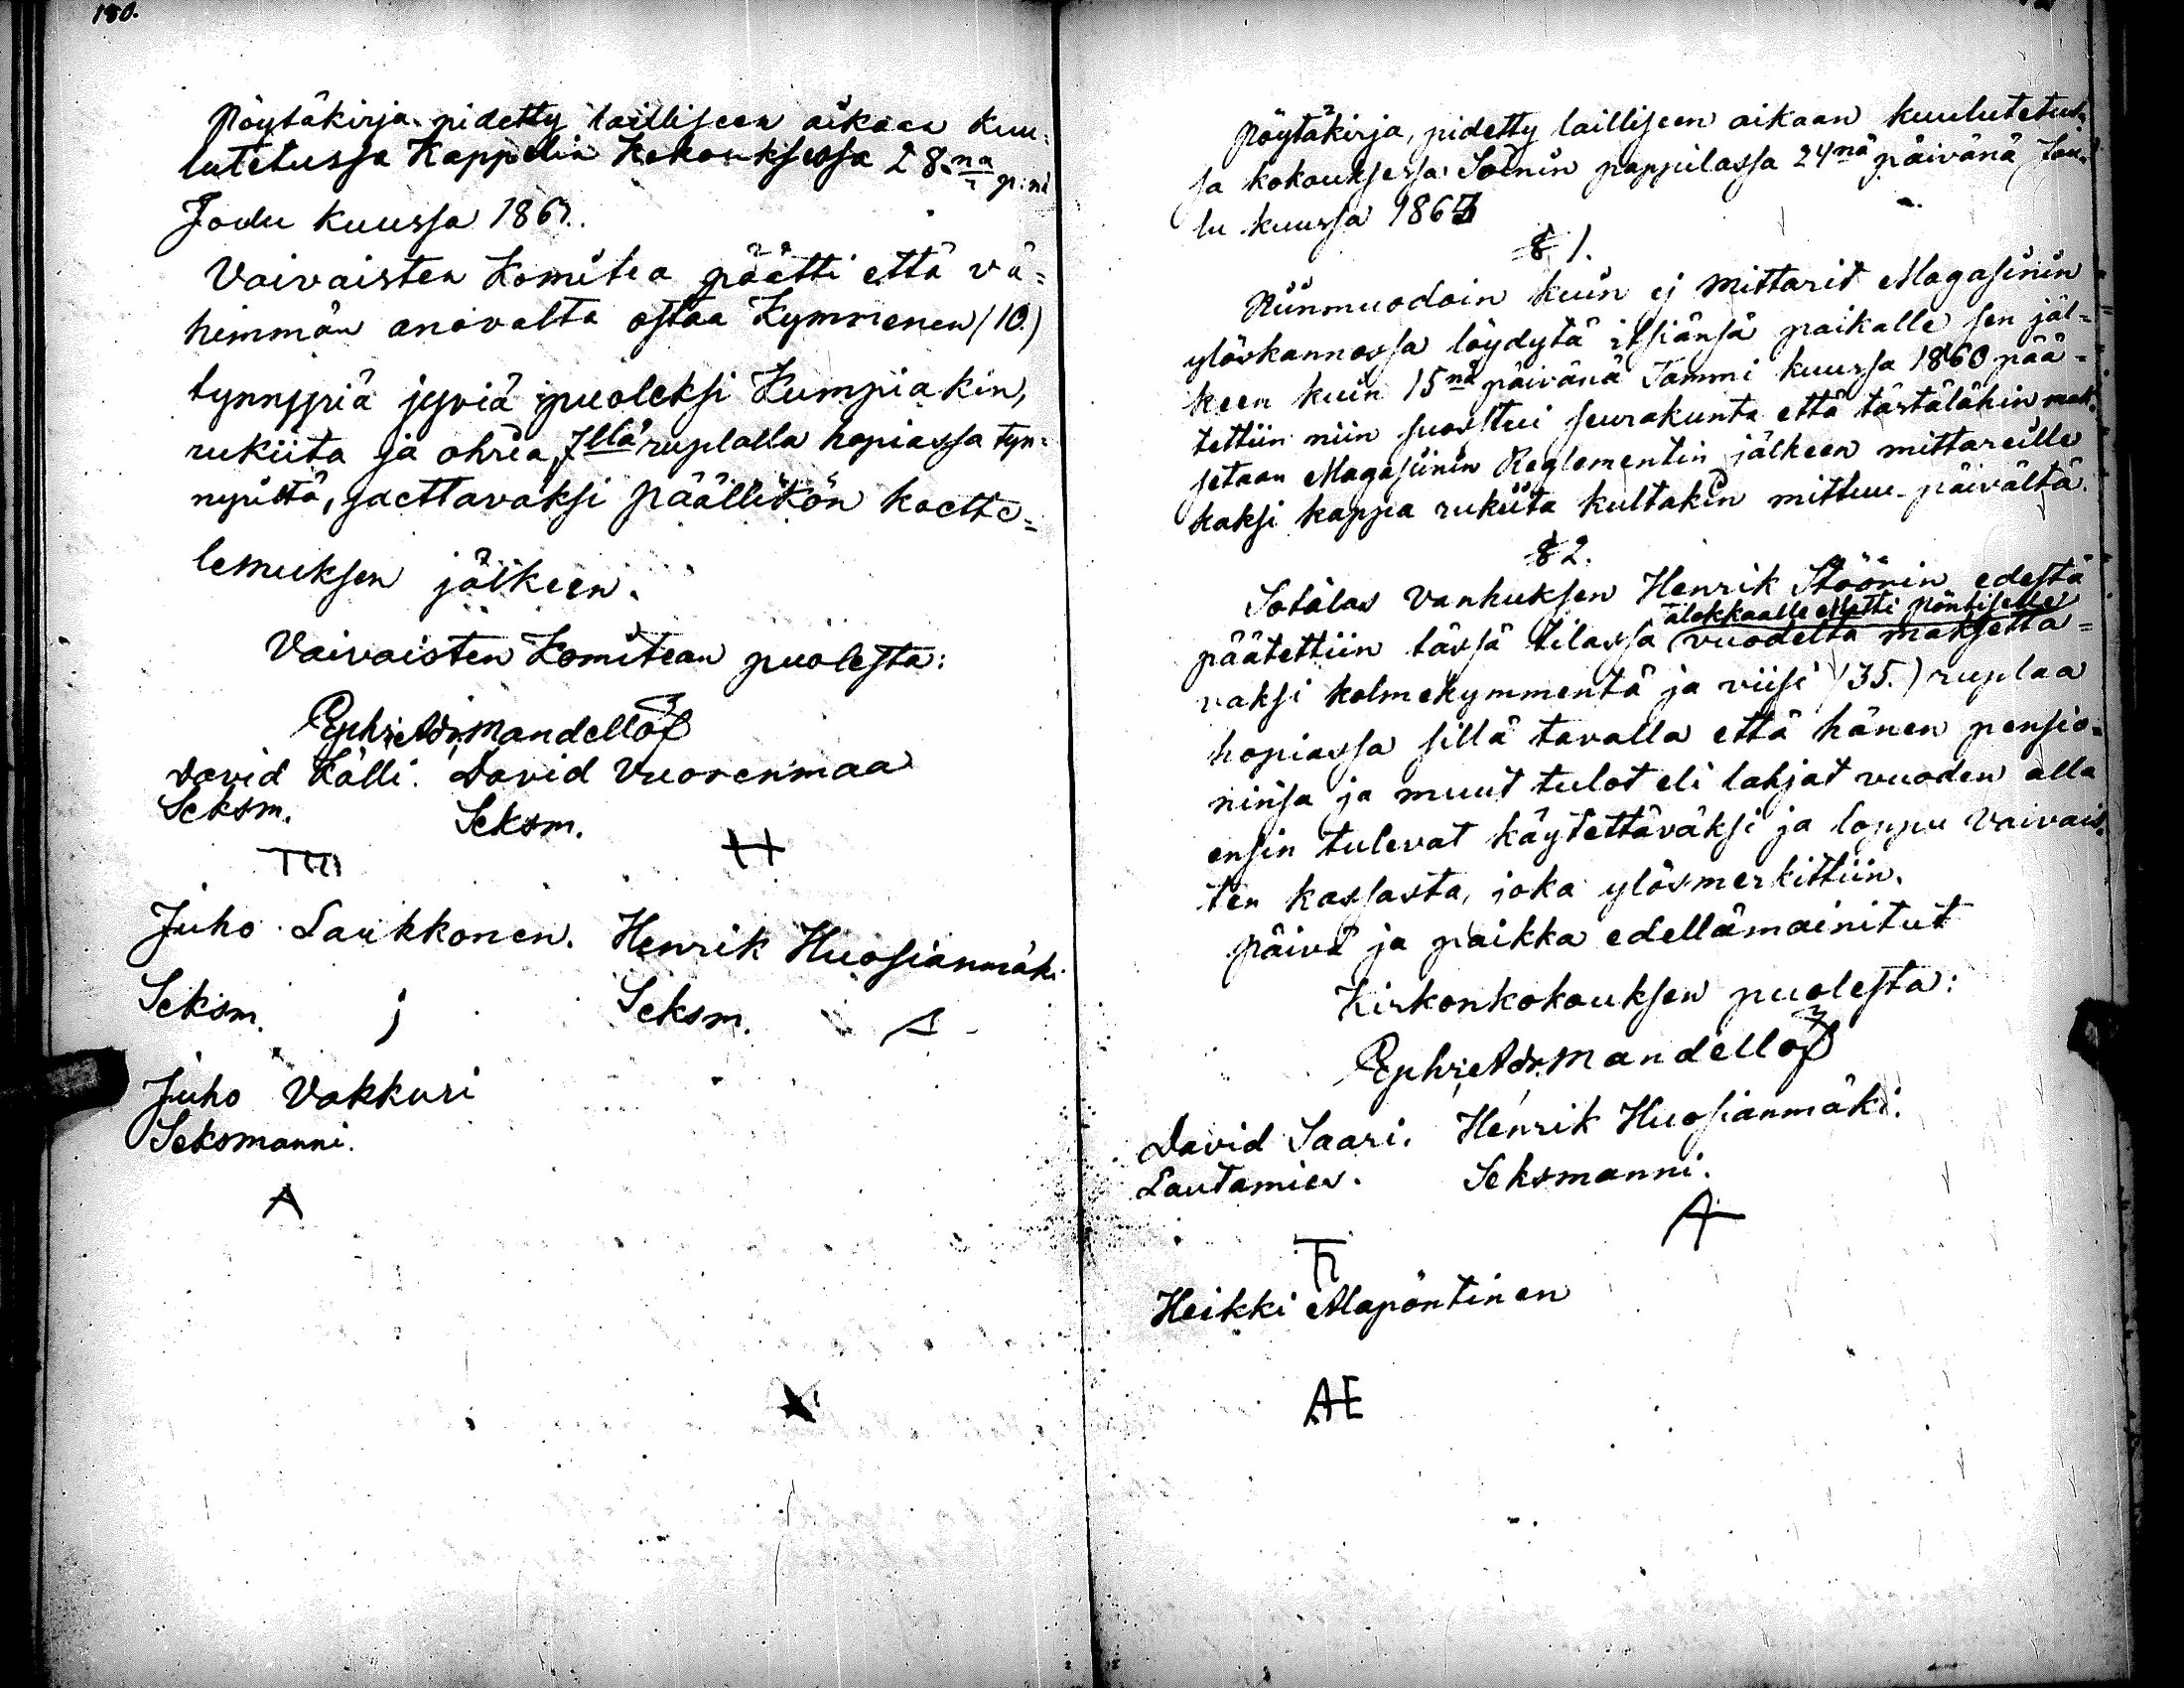 180.
Pöytäkirja pidetty lailliseen aikaan kuu=
lutetussa Kappelin Kokouksessa 28.na p:nä
Joulu kuussa 186
Vaivaisten Komitea päätti että vä=
himmän anovalta ostaa Kymmenen (10.)
tynnyriä jyviä puoleksi Kumpiakin,
rukiita ja ohria, 7llä ruplalla hopiassa tyn=
nyriltä, jaettavaksi päällikön koette=
lemuksen jälkeen.
Vaivaisten Komitean puolesta:
Ephr. Adr. Mandellöf
David Källi. David Vuorenmaa
Seksm. Seksm.
Juho Laukkonen. Henrik Huosianmäki
Seksm. Seksm.
Juho Vakkuri
Seksmanni.
A
Pöytäkirja, pidetty lailliseen aikaan kuulutetus=
sa kokouksessa Soinin pappilassa 24nä päivänä Jou=
lu kuussa 186
§ 1.
Niinmuodoin kuin ej mittarit Magasinin
ylöskannossa löydytä itsiänsä paikalle sen jäl=
keen kuin 15nä päivänä Tammi kuussa 1860 pää=
tettiin niin suostui seurakunta että tästälähin mak=
setaan Magasiinin Reglementin jälkeen mittareille
kaksi kappa rukiita kultakin mittuu-päivältä.
§ 2.
Sotilas vanhuksen Henrik Stöörin edestä
talokkaalle Matti Pöntiselle
päätettiin tässä tilassa vuodelta maksetta=
vaksi kolmekymmentä ja viisi (35.) ruplaa
hopiassa sillä tavalla että hänen pensio=
ninsa ja muut tulot eli lahjat vuoden alla
ensin tulevat käytettäväksi ja loppu vaivais=
ten kassasta, joka ylösmerkittiin.
Päivä ja paikka edellämainitut
Kirkonkokouksen puolesta:
Ephr. Adr. Mandellöf
David Saari. Henrik Huosianmäki.
Lautamies. Seksmanni.
A
Heikki Alapöntinen
AE